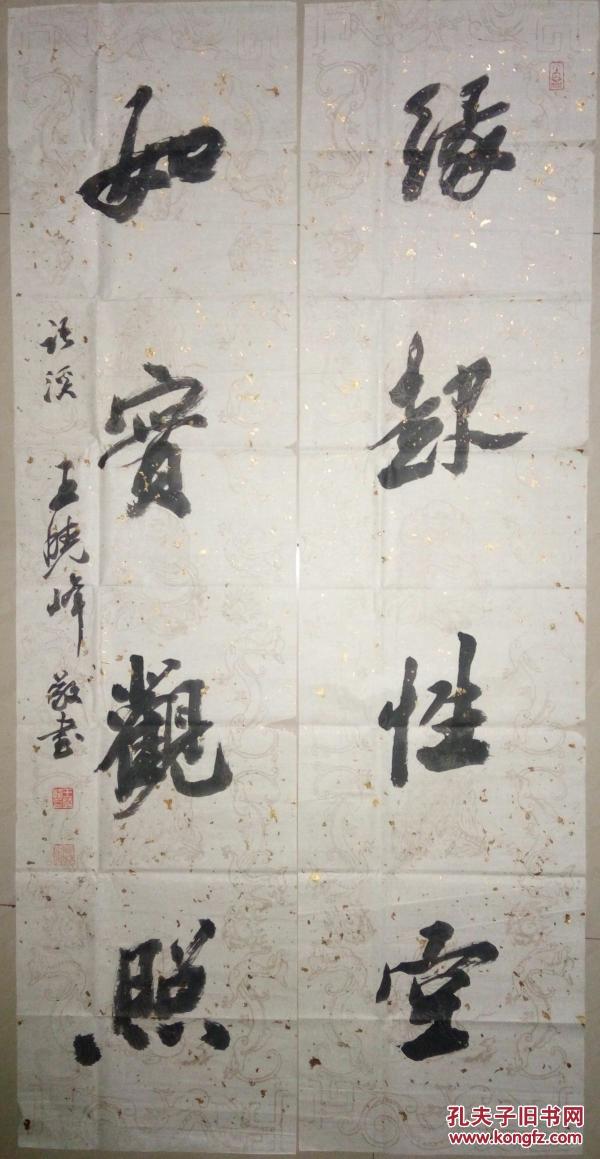 缘起性空
如實觀照
语溪 王曉峰 敬书
孔夫子旧书网
www.kongfz.com